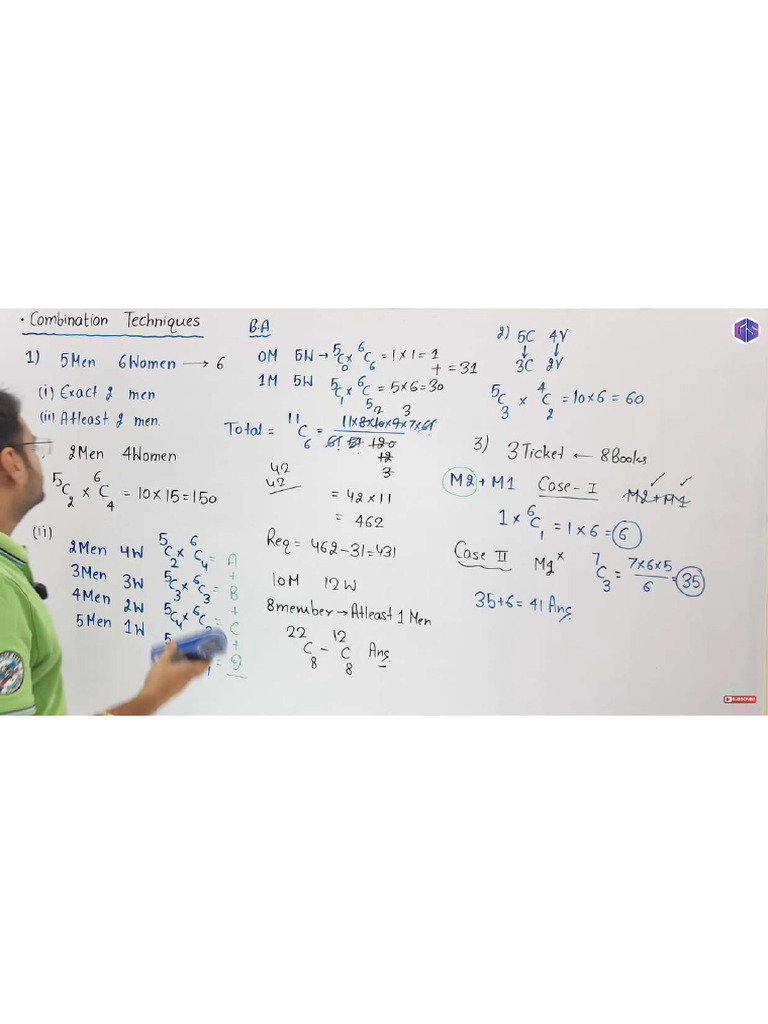 · Combination Techniques
1) 5Men 6Women → 6
(i) Exact 2 men
(ii) Atleast 2 men.
2Men 4Women
⁵C₂ × ⁶C₄ = 10×15=150
(ii)
2Men 4W ⁵C₂ × ⁶C₄ = A
+
3Men 3W ⁵C₃ × ⁶C₃ = B
+
4Men 2W ⁵C₄ × ⁶C₂ = C
+
5Men 1W 5 = D
B.A
0M 5W → ⁵C₀ × ⁶C₆ = 1×1=1
+ = 31
1M 5W ⁵C₁ × ⁶C = 5×6=30
5 2 3
Total = ¹¹C₆ = 11×8×10×9×7×6!
6! 5! 120
12
3
42
42
= 42×11
= 462
Req = 462-31=431
10M 12W
8member → Atleast 1 Men
²²C₈ - ¹²C₈ Ans.
2) 5C 4V
↓ ↓
3C 2V
⁵C₃ × ⁴C₂ = 10×6 = 60
3) 3Ticket ← 8Books
M2 + M1 Case-I M2+M1
1 × ⁶C₁ = 1×6 = 6
Case II M2 × ⁷C₃ = 7×6×5 = 35
6
35+6 = 41 Ans.
SUBSCRIBE